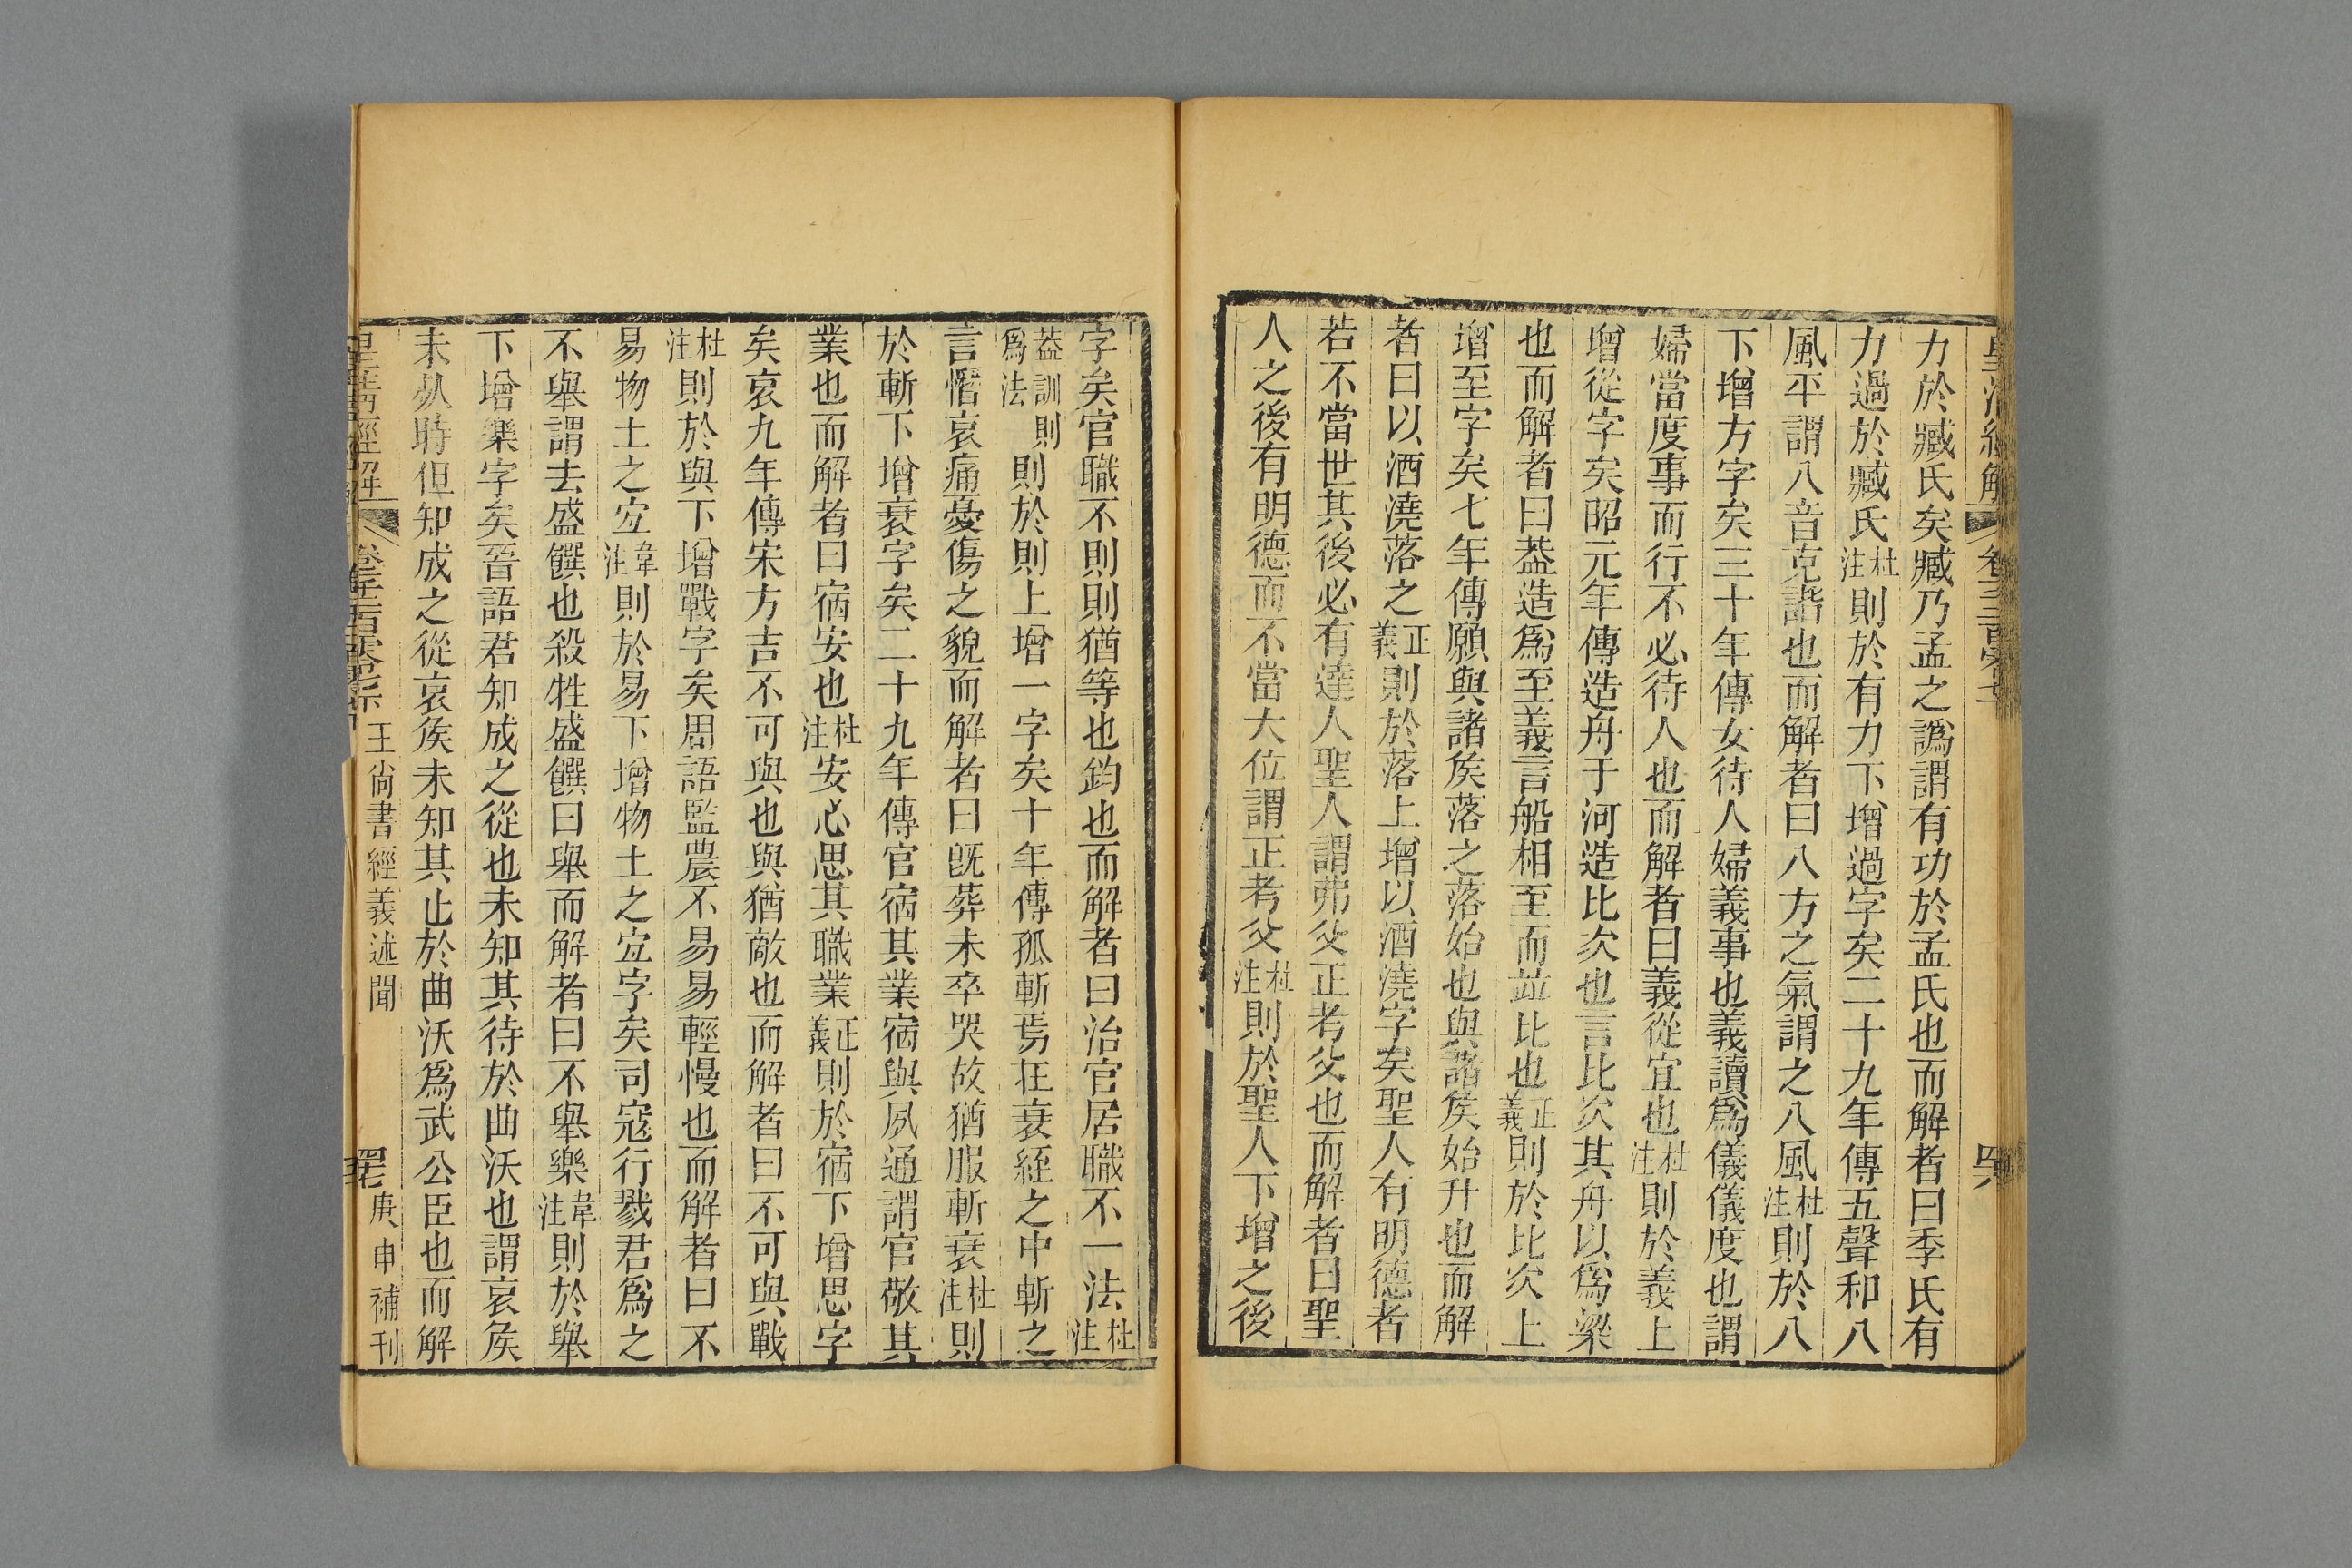 力於臧氏矣臧乃孟之譌謂有功於孟氏也而解者曰季氏有
力過於臧氏杜注則於有力下增過字矣二十九年傳五聲和八
風平謂八音克諧也而解者曰八方之氣謂之八風杜注則於八
下增方字矣三十年傳女待人婦義事也義讀爲儀儀度也謂
婦當度事而行不必待人也而解者曰義從宜也杜注則於義上
增從字矣昭元年傳造舟于河造比次也言比次其舟以爲梁
也而解者曰葢造爲至義言船相至而竝比也正義則於比次上
增至字矣七年傳願與諸矦落之落始也與諸矦始升也而解
者曰以酒澆落之正義則於落上增以酒澆字矣聖人有明德者
若不當世其後必有達人聖人謂弗父正考父也而解者曰聖
人之後有明德而不當大位謂正考父杜注則於聖人下增之後
字矣官職不則則猶等也鈞也而解者曰治官居職不一法杜注
葢訓則爲法則於則上增一字矣十年傳孤斬焉在衰絰之中斬之
言憯哀痛憂傷之貌而解者曰旣葬未卒哭故猶服斬衰杜注則
於斬下增衰字矣二十九年傳官宿其業宿與夙通謂官敬其
業也而解者曰宿安也杜注安心思其職業正義則於宿下增思字
矣哀九年傳宋方吉不可與也與猶敵也而解者曰不可與戰
杜注則於與下增戰字矣周語監農不易易輕慢也而解者曰不
易物土之宜韋注則於易下增物土之宜字矣司寇行戮君爲之
不舉謂去盛饌也殺牲盛饌曰舉而解者曰不舉樂韋注則於舉
下增樂字矣晉語君知成之從也未知其待於曲沃也謂哀矦
未㱙時但知成之從哀矦未知其止於曲沃爲武公臣也而解
王尙書經義述聞
庚申補刊